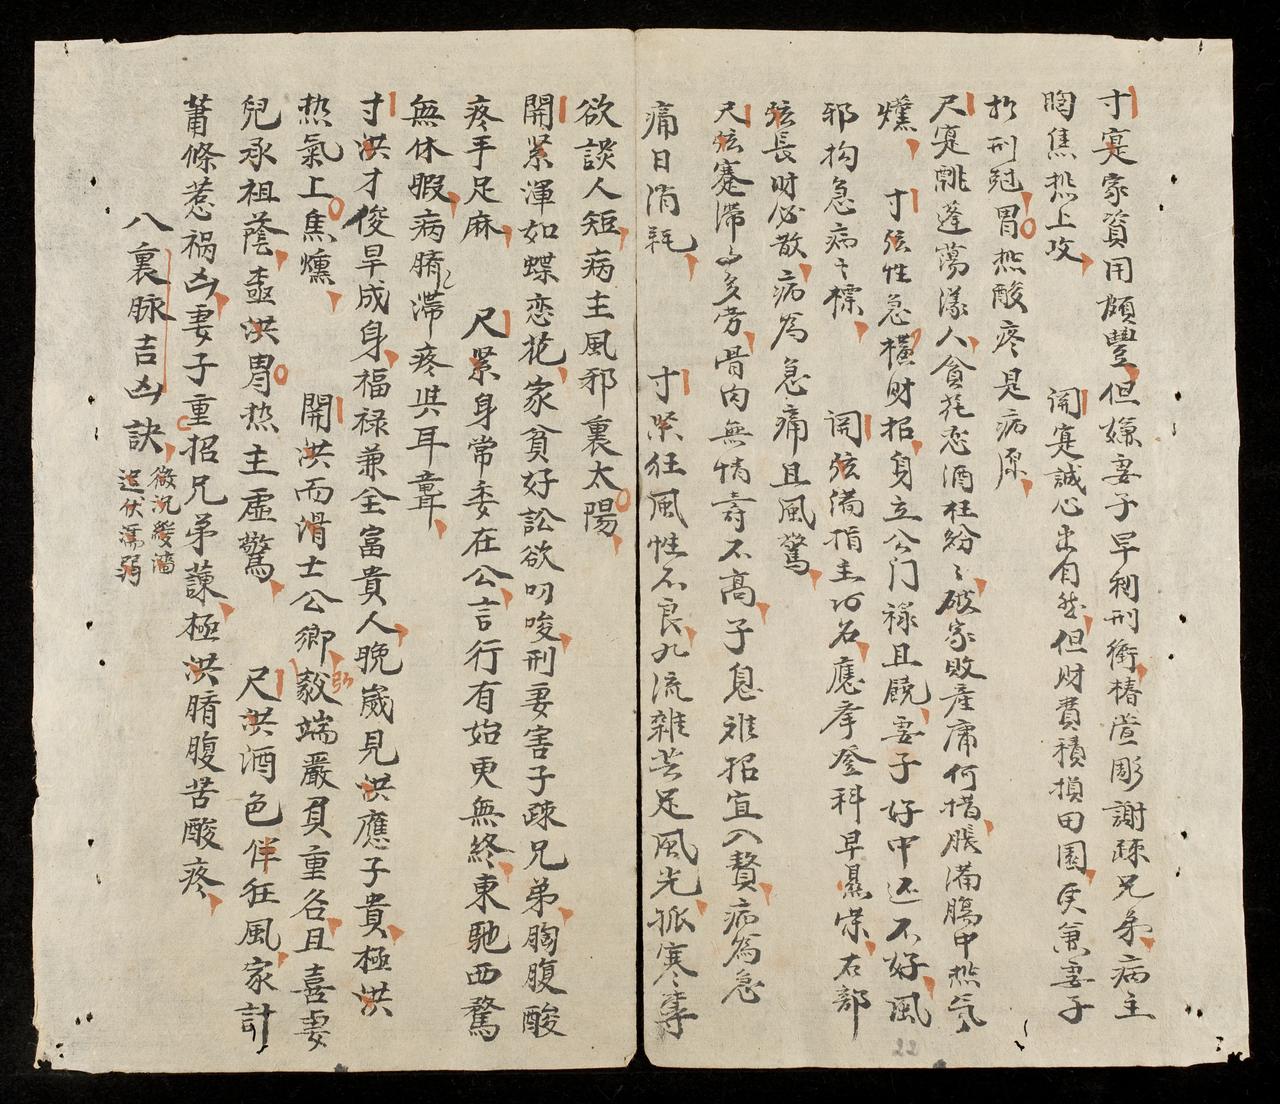 寸寔家資用頗豐但嫌妻子早利刑衝椿萱彫謝疎兄弟病主
胸焦热上攻 関寔誠心出自然但財費積損田園侯兼妻子
於刑尅胃热酸疼是病源
尺寔飄蓬蕩漾人貪花恋酒枉紛々破家敗産庸何惜脹滿腸中热氣
燻 寸弦性急橫財招身立公门禄且饒妻子好中还不好風
邪构急病之標 関弦滿指主功名應孝登科早显榮右部
弦長財必散病為急痛且風驚
尺弦蹇滯多劳骨肉無情壽不高子息难招宜入贅病為急
痛日消耗 寸緊狂風性不良九流雜芸足風光孤寒孳
欲談人短病主風邪裏太陽
関緊渾如蝶恋花家貧好訟欲叨唆刑妻害子疎兄弟胸腹酸
疼手足麻 尺緊身常委在公言行有始更無終東馳西騖
無休暇病腈滯疼共耳聾
寸洪才俊早成身福禄兼全富貴人晚嵗見洪應子貴極洪
热氣上焦燻 関洪而滑士公卿毅端嚴負重名且喜妻
兒承祖蔭盍洪胃热主虛驚 尺洪酒色伴狂風家計
蕭條惹禍凶妻子重招兄弟諫極洪腈腹苦酸疼
八裏脉吉凶訣 微沉緩濇
遲伏濡弱
22